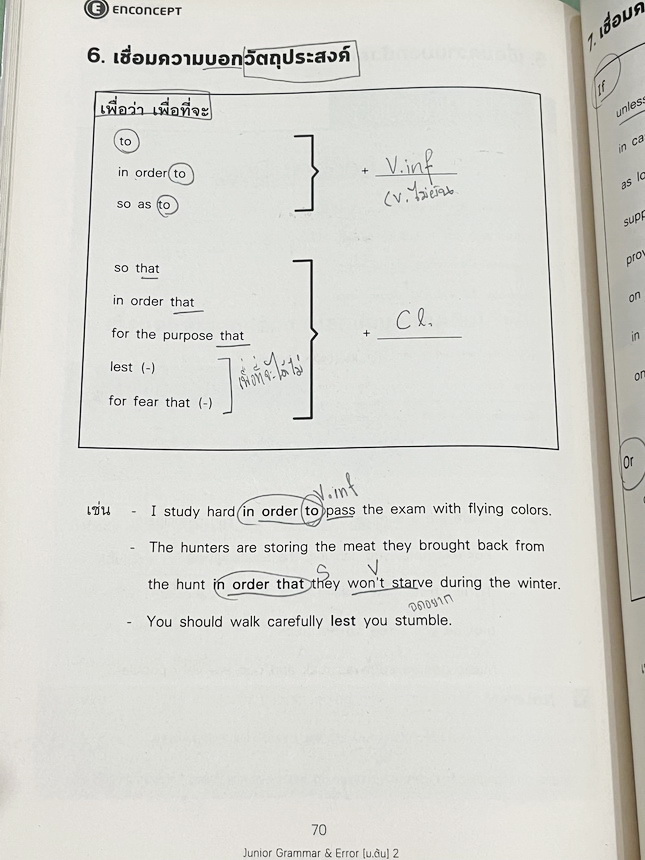 E ENCONCEPT
6. เชื่อมความบอกวัตถุประสงค์
เพื่อว่า เพื่อที่จะ
to
in order to
so as to
+ V.inf
(v.ไม่ผัน
so that
in order that
for the purpose that
lest (-)
for fear that (-)
เพื่อที่จะได้ไม่
+ Cl.
V.inf
เช่น - I study hard in order to pass the exam with flying colors.
- The hunters are storing the meat they brought back from
S V
the hunt in order that they won't starve during the winter.
อดอยาก
- You should walk carefully lest you stumble.
70
Junior Grammar & Error [ม.ต้น] 2
7. เชื่อมค
If
unless
in ca
as lo
supp
prov
on
in
on
Or